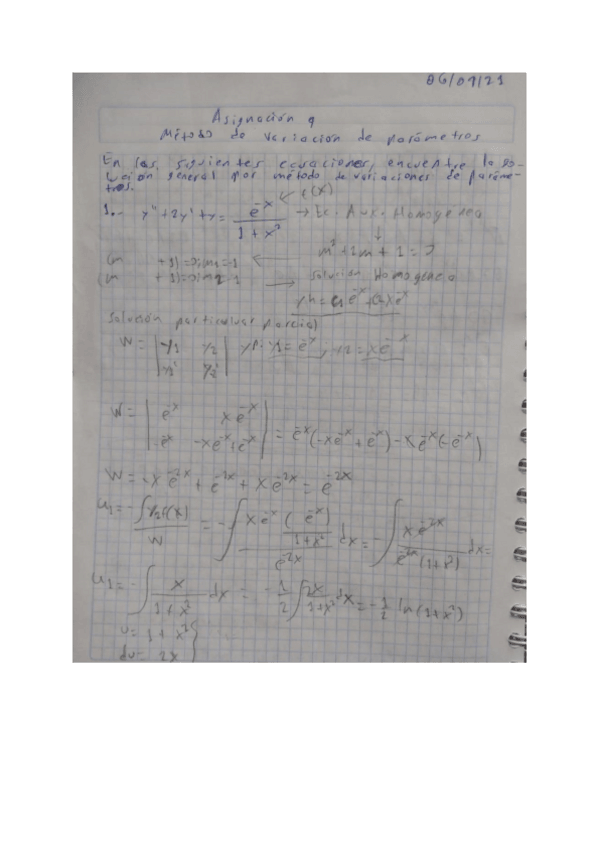 06/09/21
Asignación 9
Método de variación de parámetros
En las siguientes ecuaciones, encuentre la so-
lución general por método de variaciones de paráme-
tros.
1.- y'' + 2y' + y = e^-x / (1 + x²) ← f(x) → Ec. Aux. Homogenea
↓
m² + 2m + 1 = 0
(m + 1) = 0; m1 = -1 ←
(m + 1) = 0; m2 = -1 → Solución Homogenea
yh = C1 e^-x + C2 x e^-x
Solución particular parcial
W = | y1 y2 | yp. y1 = e^-x, y2 = x e^-x
| y1' y2' |
W = | e^-x x e^-x | = e^-x(-x e^-x + e^-x) - x e^-x(-e^-x)
| -e^-x -x e^-x + e^-x |
W = -x e^-2x + e^-2x + x e^-2x = e^-2x
u1 = -∫ y2 f(x) / W = -∫ x e^-x (e^-x / (1 + x²)) / e^-2x dx = -∫ x e^-2x / (e^-2x (1 + x²)) dx =
u1 = -∫ x / (1 + x²) dx = -1/2 ∫ 2x / (1 + x²) dx = -1/2 ln(1 + x²)
u = 1 + x² }
du = 2x